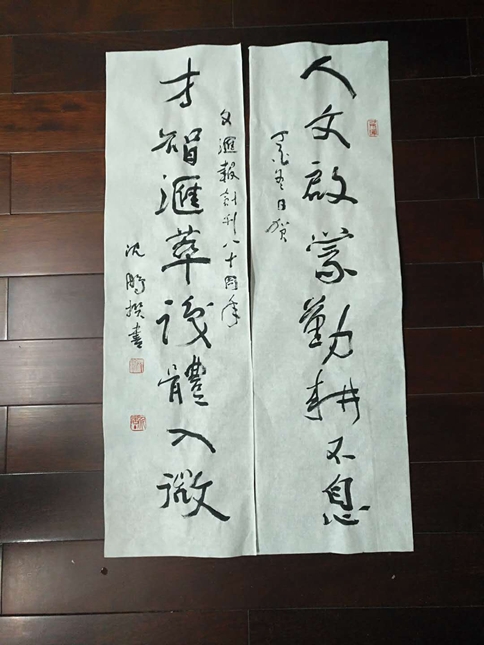 人文啟蒙勤耕不息
丁酉冬日賀
文匯報創刊八十周年
才智匯萃識體入微
沈鵬撰書